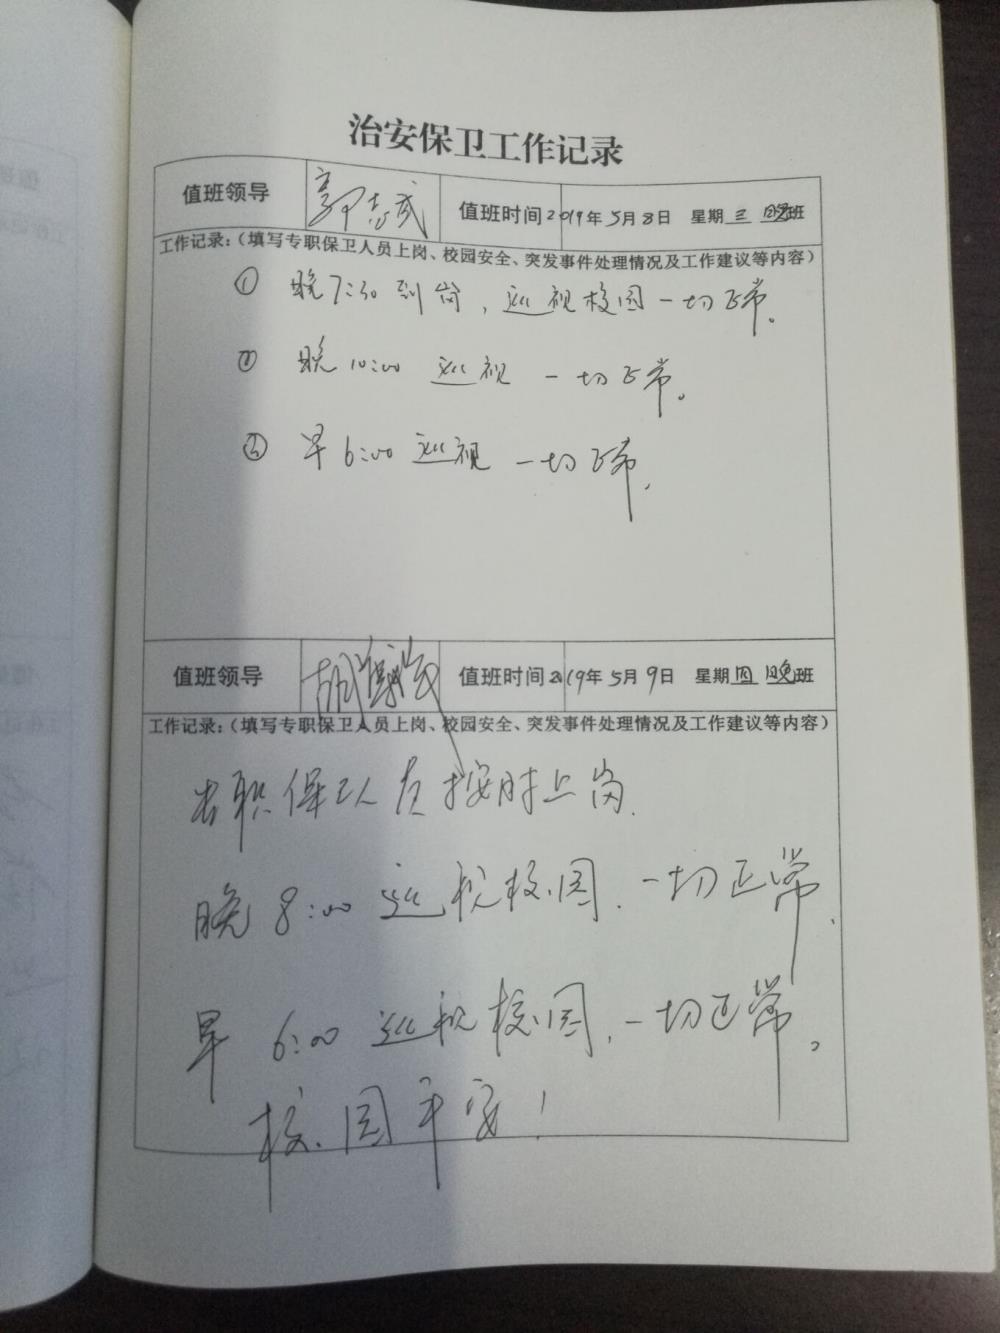 治安保卫工作记录
值班领导 郭志武 值班时间2019年5月8日 星期三 晚班
工作记录:(填写专职保卫人员上岗、校园安全、突发事件处理情况及工作建议等内容)
① 晚7:30到岗,巡视校园一切正常。
② 晚10:00 巡视 一切正常。
③ 早6:00巡视 一切正常.
值班领导 值班时间2019年5月9日 星期四 晚班
工作记录:(填写专职保卫人员上岗、校园安全、突发事件处理情况及工作建议等内容)
专职保卫人员按时上岗.
晚8:00巡视校园.一切正常.
早6:00巡视校园,一切正常。
校园平安!